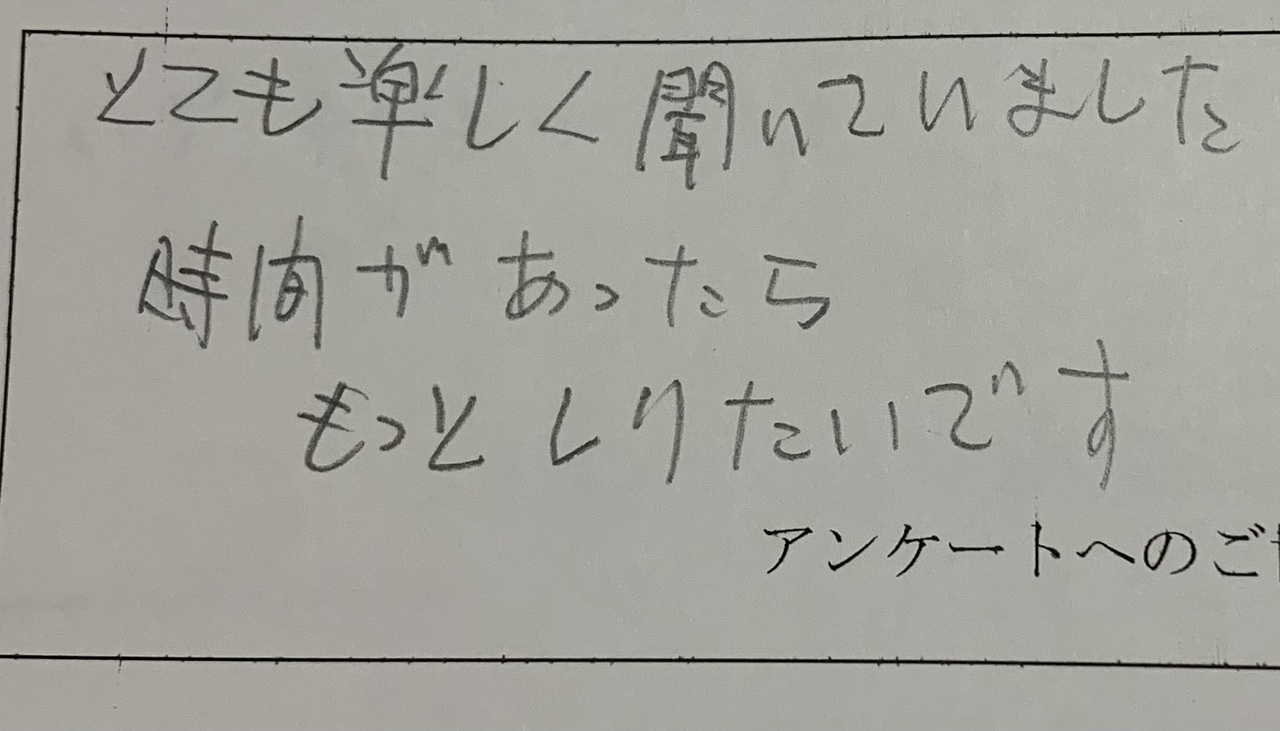 とても楽しく聞いていました
時間があったら
もっとしりたいです
アンケートへのご